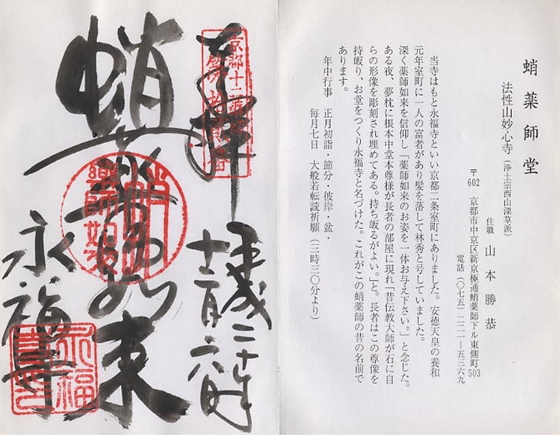 蛸薬師堂
法性山妙心寺(浄土宗西山深草派)
〒602 京都市中京区新京極通蛸薬師下ル東側町503
電話(〇七五)二二一-五三六九
住職 山本勝恭
当寺はもと永福寺といい京都二条室町にありました。安徳天皇の養和
元年室町に一人の富者があり髪を落して林秀と号していました。
深く薬師如来を信仰し「薬師如来のお姿を一体お与え下さい。」と念じた。
ある夜、夢枕に根本中堂本尊様が長者の部屋に現れ「昔伝教大師が石に自
らの形像を彫刻され埋めてある。持ち皈るがよい。」と。長者はこの尊像を
持皈り、お堂をつくり永福寺と名づけた。これがこの蛸薬師の昔の名前で
あります。
年中行事 正月初詣・節分・彼岸・盆・
毎月七日 大般若転読祈願(三時三〇分より)
奉拝
平成二十年
十二月六日
蛸薬師如来
永福寺